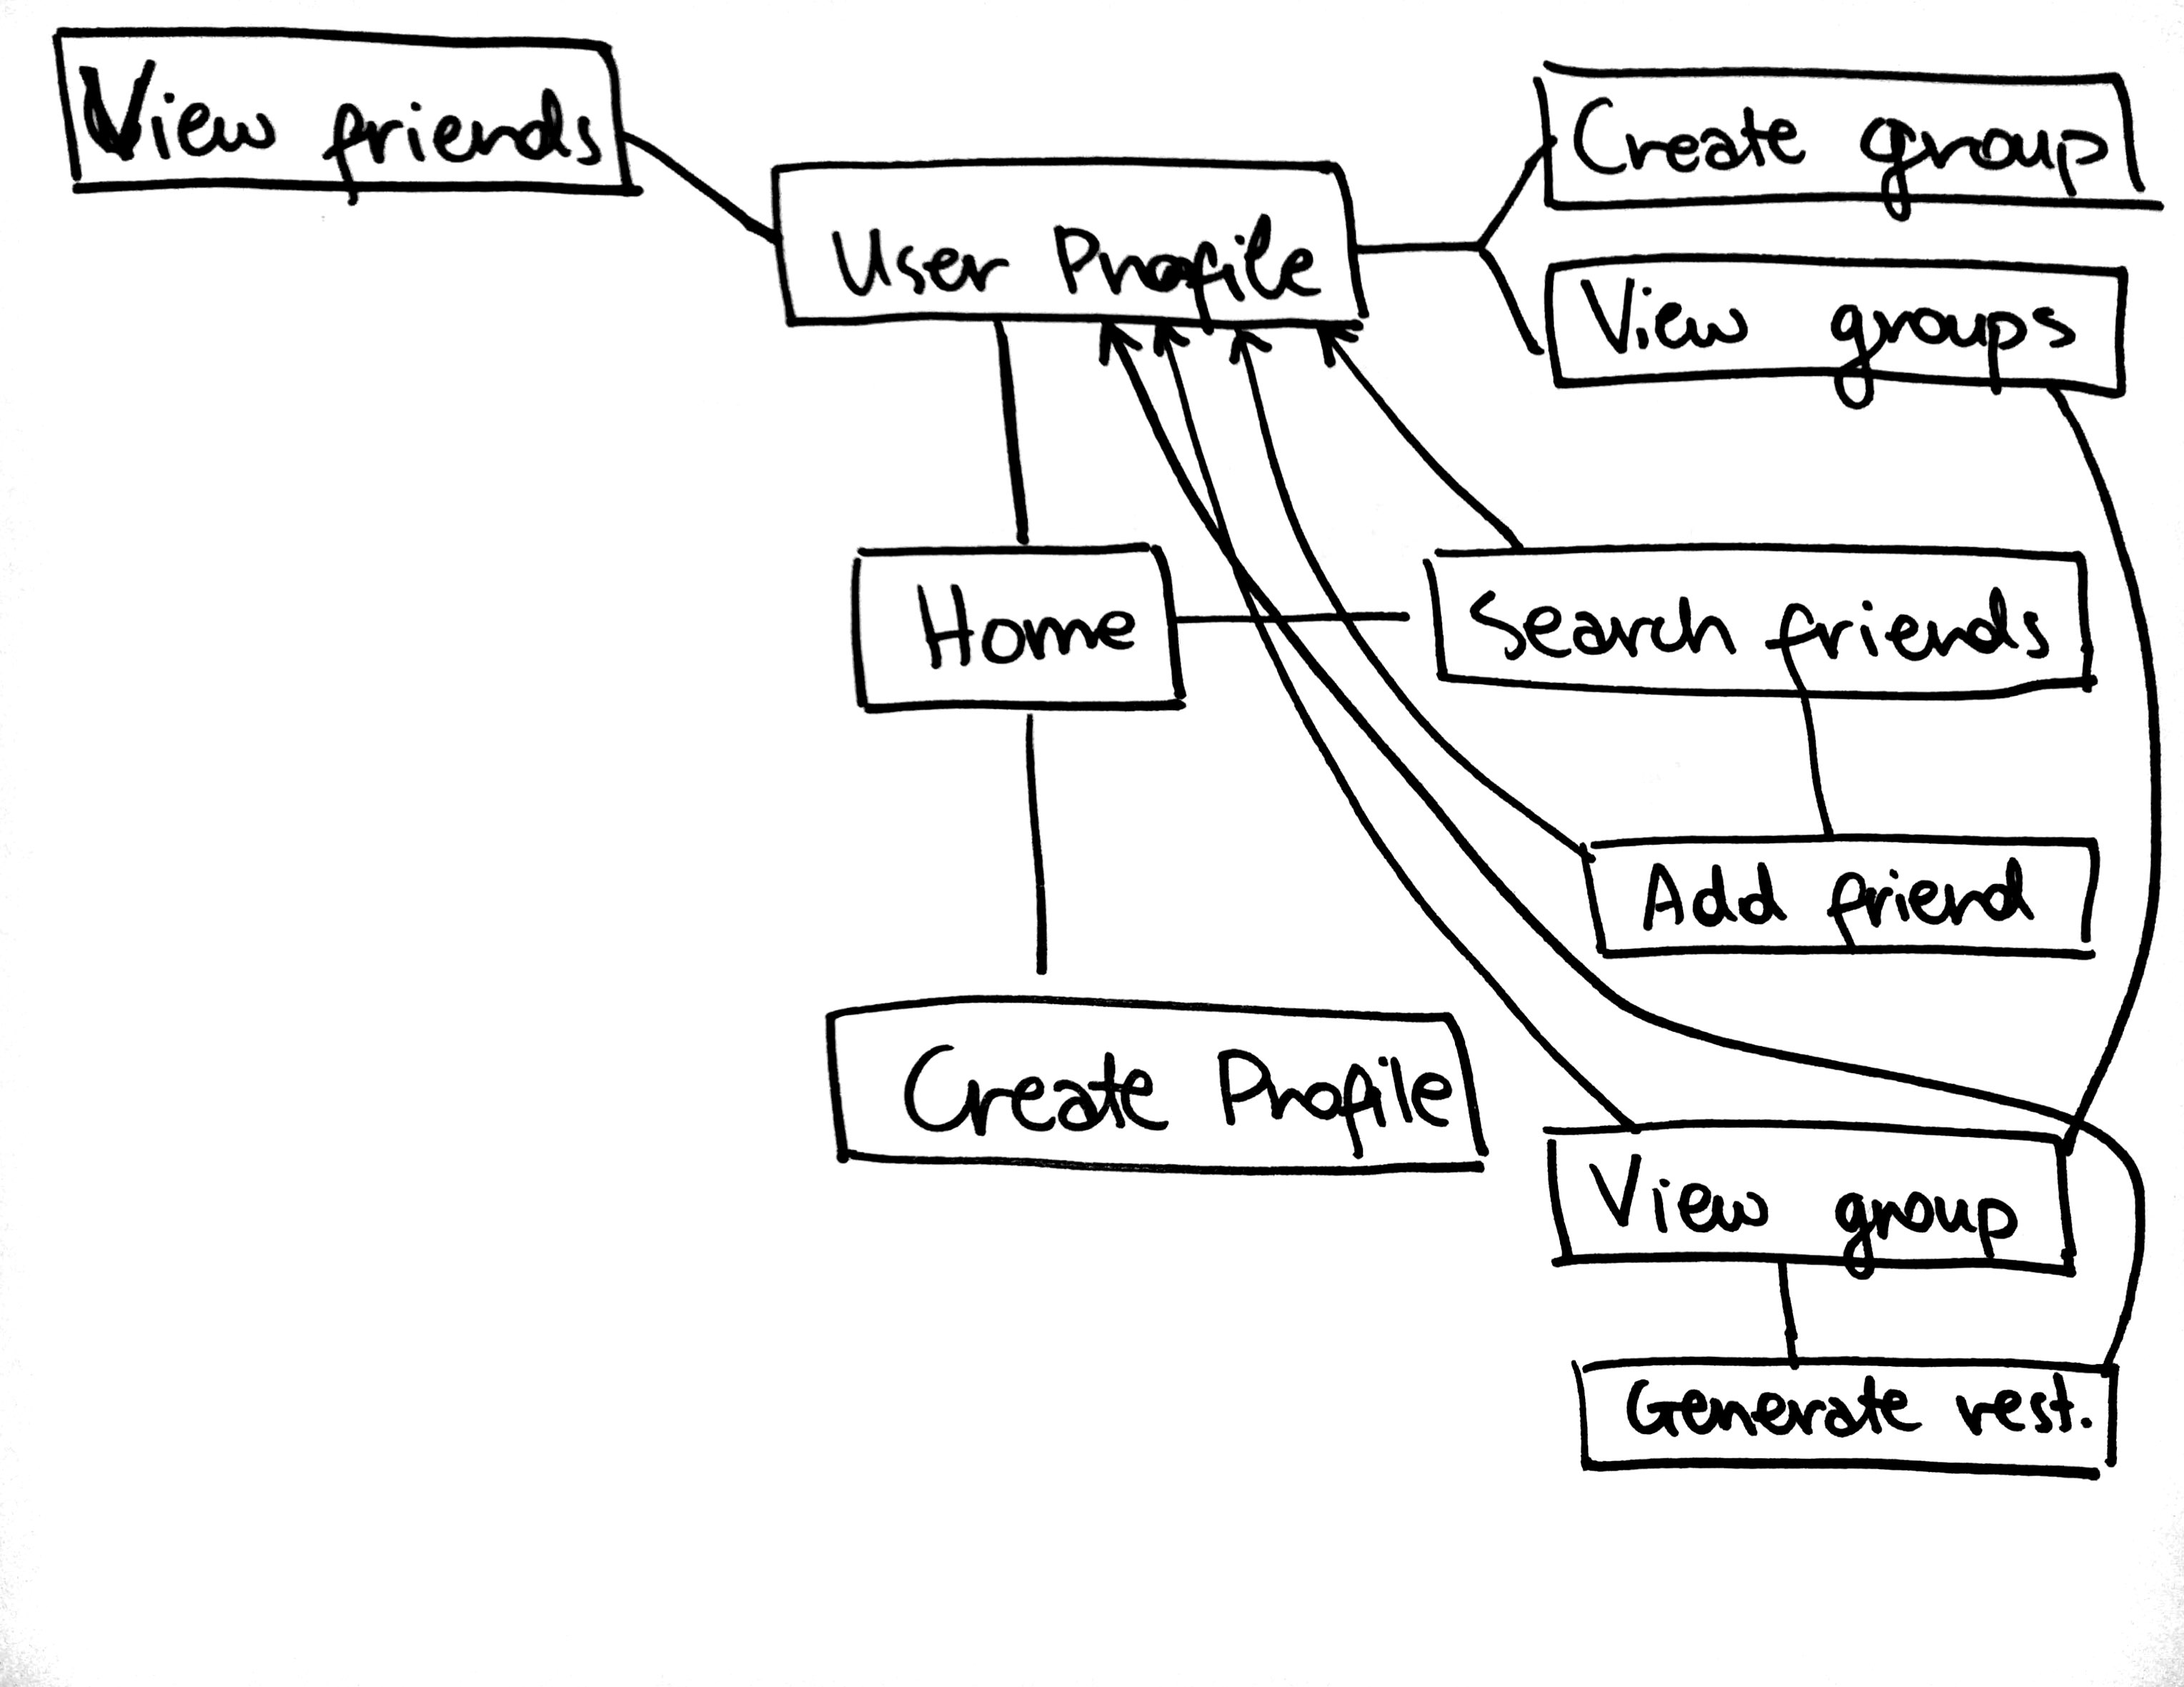 View friends
User Profile
Create group
View groups
Home
Search friends
Add friend
Create Profile
View group
Generate rest.